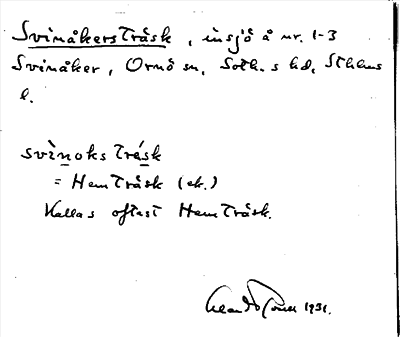 Svinåkersträsk, insjö å nr. 1-3
Svinåker, Ornö sn, Soth.s hd, Sthlms
l.
svìnoks trásk
= Hemträsk (ek.)
Kallas oftast Hemträsk.
1931.